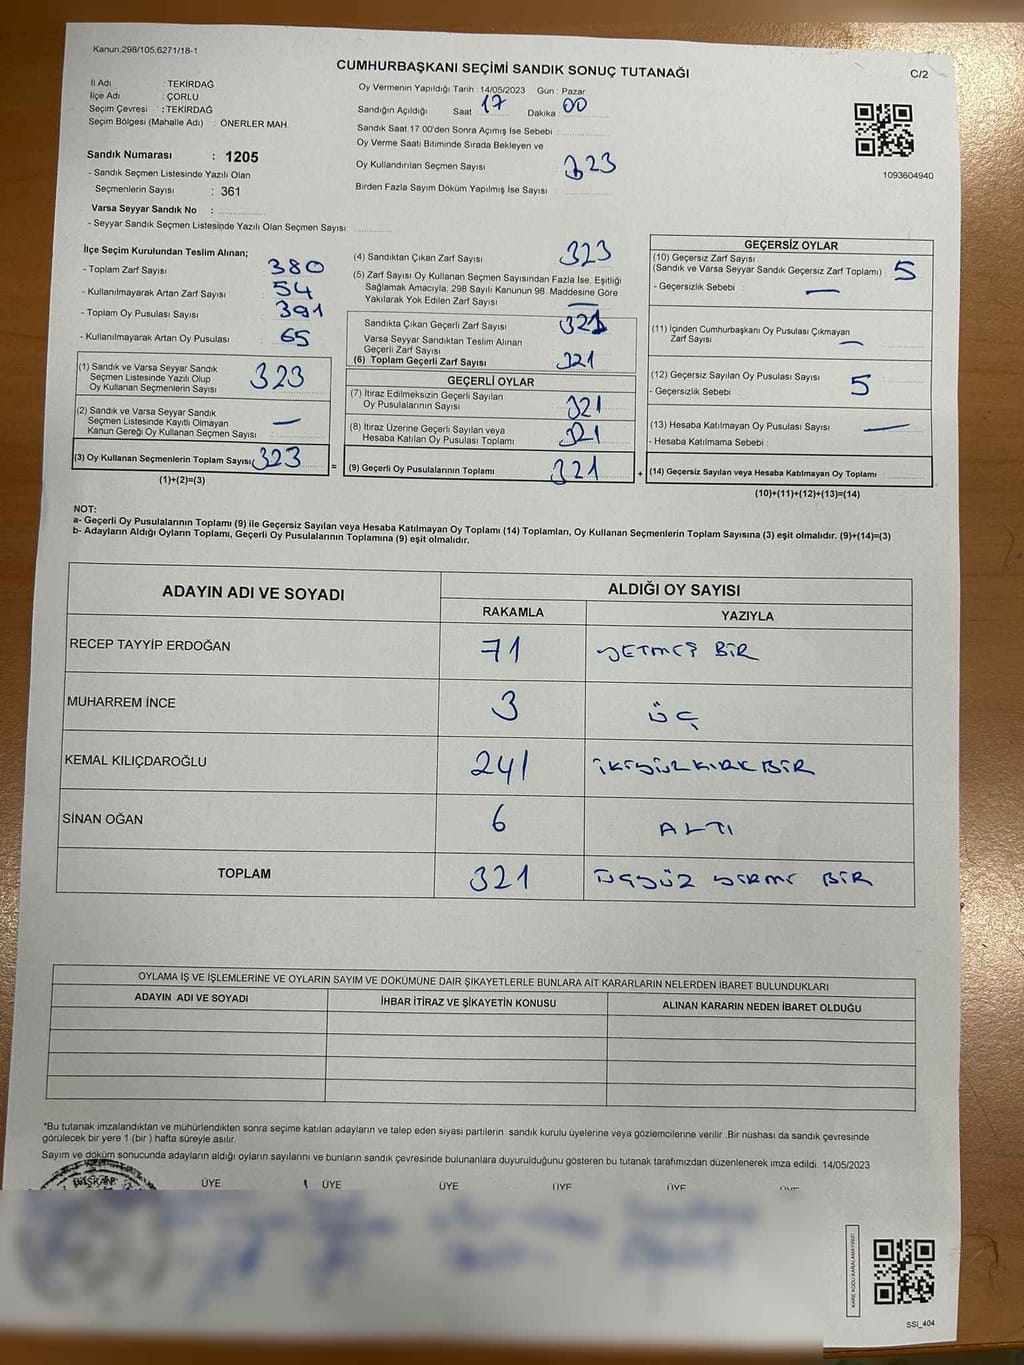 Kanun:298/105,6271/18-1
CUMHURBAŞKANI SEÇİMİ SANDIK SONUÇ TUTANAĞI
C/2
İl Adı : TEKİRDAĞ
İlçe Adı : ÇORLU
Seçim Çevresi : TEKİRDAĞ
Seçim Bölgesi (Mahalle Adı) : ÖNERLER MAH.
Sandık Numarası : 1205
- Sandık Seçmen Listesinde Yazılı Olan
Seçmenlerin Sayısı : 361
Varsa Seyyar Sandık No :
- Seyyar Sandık Seçmen Listesinde Yazılı Olan Seçmen Sayısı:
Oy Vermenin Yapıldığı Tarih : 14/05/2023 Gün : Pazar
Sandığın Açıldığı Saat 17 Dakika : 00
Sandık Saat 17:00'den Sonra Açımış İse Sebebi :
Oy Verme Saati Bitiminde Sırada Bekleyen ve
Oy Kullandırılan Seçmen Sayısı 323
Birden Fazla Sayım Döküm Yapılmış İse Sayısı :
1093604940
İlçe Seçim Kurulundan Teslim Alınan;
- Toplam Zarf Sayısı : 380
- Kullanılmayarak Artan Zarf Sayısı : 54
- Toplam Oy Pusulası Sayısı : 391
- Kullanılmayarak Artan Oy Pusulası : 65
(1) Sandık ve Varsa Seyyar Sandık
Seçmen Listesinde Yazılı Olup
Oy Kullanan Seçmenlerin Sayısı 323
(2) Sandık ve Varsa Seyyar Sandık
Seçmen Listesinde Kayıtlı Olmayan
Kanun Gereği Oy Kullanan Seçmen Sayısı —
(3) Oy Kullanan Seçmenlerin Toplam Sayısı 323
(1)+(2)=(3)
=
(4) Sandıktan Çıkan Zarf Sayısı 323
(5) Zarf Sayısı Oy Kullanan Seçmen Sayısından Fazla İse, Eşitliği
Sağlamak Amacıyla, 298 Sayılı Kanunun 98. Maddesine Göre
Yakılarak Yok Edilen Zarf Sayısı —
Sandıkta Çıkan Geçerli Zarf Sayısı 321
Varsa Seyyar Sandıktan Teslim Alınan
Geçerli Zarf Sayısı
(6) Toplam Geçerli Zarf Sayısı 321
GEÇERLİ OYLAR
(7) İtiraz Edilmeksizin Geçerli Sayılan
Oy Pusulalarının Sayısı 321
(8) İtiraz Üzerine Geçerli Sayılan veya
Hesaba Katılan Oy Pusulası Toplamı 321
(9) Geçerli Oy Pusulalarının Toplamı 321
+
GEÇERSİZ OYLAR
(10) Geçersiz Zarf Sayısı
(Sandık ve Varsa Seyyar Sandık Geçersiz Zarf Toplamı) 5
- Geçersizlik Sebebi : —
(11) İçinden Cumhurbaşkanı Oy Pusulası Çıkmayan
Zarf Sayısı —
(12) Geçersiz Sayılan Oy Pusulası Sayısı 5
- Geçersizlik Sebebi :
(13) Hesaba Katılmayan Oy Pusulası Sayısı —
- Hesaba Katılmama Sebebi :
(14) Geçersiz Sayılan veya Hesaba Katılmayan Oy Toplamı :
(10)+(11)+(12)+(13)=(14)
NOT:
a- Geçerli Oy Pusulalarının Toplamı (9) ile Geçersiz Sayılan veya Hesaba Katılmayan Oy Toplamı (14) Toplamları, Oy Kullanan Seçmenlerin Toplam Sayısına (3) eşit olmalıdır. (9)+(14)=(3)
b- Adayların Aldığı Oyların Toplamı, Geçerli Oy Pusulalarının Toplamına (9) eşit olmalıdır.
ADAYIN ADI VE SOYADI ALDIĞI OY SAYISI
RAKAMLA YAZIYLA
RECEP TAYYİP ERDOĞAN 71 YETMİŞ BİR
MUHARREM İNCE 3 ÜÇ
KEMAL KILIÇDAROĞLU 241 İKİYÜZKIRKBİR
SİNAN OĞAN 6 ALTI
TOPLAM 321 ÜÇYÜZ YİRMİ BİR
OYLAMA İŞ VE İŞLEMLERİNE VE OYLARIN SAYIM VE DÖKÜMÜNE DAİR ŞİKAYETLERLE BUNLARA AİT KARARLARIN NELERDEN İBARET BULUNDUKLARI
ADAYIN ADI VE SOYADI İHBAR İTİRAZ VE ŞİKAYETİN KONUSU ALINAN KARARIN NEDEN İBARET OLDUĞU
*Bu tutanak imzalandıktan ve mühürlendikten sonra seçime katılan adayların ve talep eden siyasi partilerin sandık kurulu üyelerine veya gözlemcilerine verilir .Bir nüshası da sandık çevresinde
görülecek bir yere 1 (bir ) hafta süreyle asılır.
Sayım ve döküm sonucunda adayların aldığı oyların sayılarını ve bunların sandık çevresinde bulunanlara duyurulduğunu gösteren bu tutanak tarafımızdan düzenlenerek imza edildi. 14/05/2023
BAŞKAN ÜYE ÜYE ÜYE ÜYE ÜYE ÜYE
KARE KODU KARALAMAYINIZ!
SSI_404